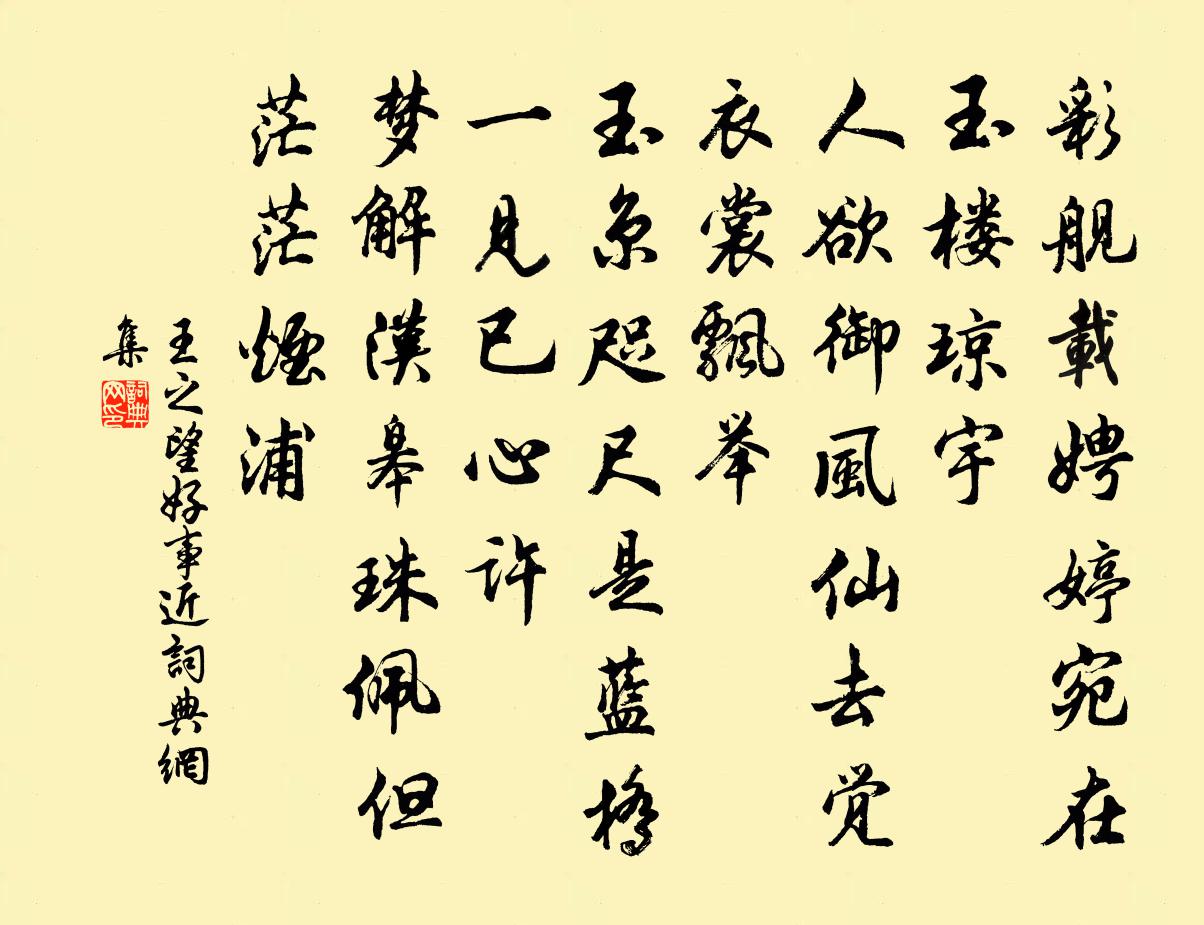 彩舰載娉婷宛在
玉楼琼宇
人欲御風仙去觉
衣裳飄举
玉京咫尺是蓝橋
一見已心许
梦解漢皋珠佩但
茫茫煙浦
王之望好事近詞典網
集
詞典
网印